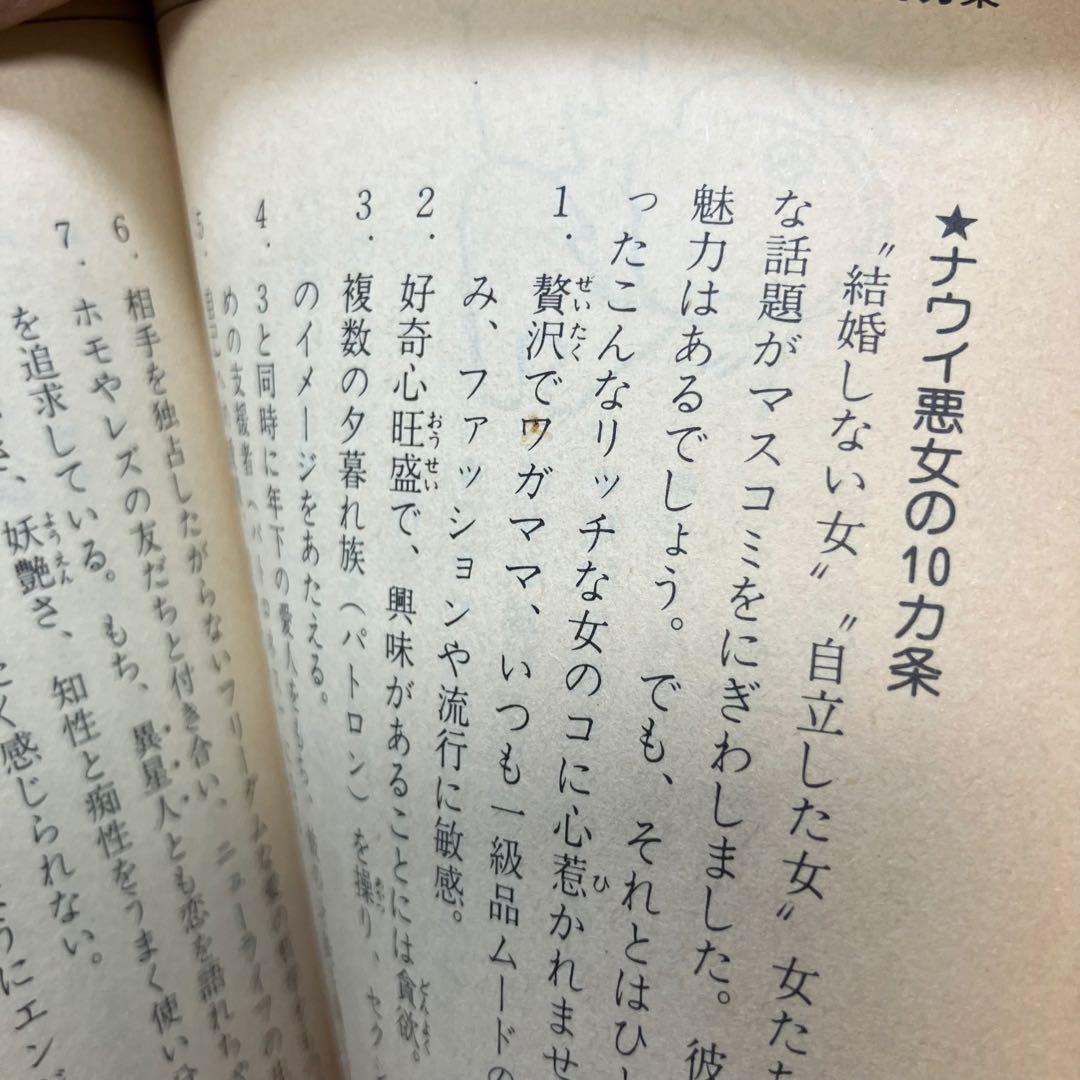 カ条
★ナウイ悪女の10カ条
〝結婚しない女〟〝自立した女〟女た
な話題がマスコミをにぎわしました。彼
魅力はあるでしょう。でも、それとはひ
ったこんなリッチな女のコに心惹かれませ
1．贅沢でワガママ、いつも一級品ムードの
み、ファッションや流行に敏感。
2．好奇心旺盛で、興味があることには貪欲。
3．複数の夕暮れ族（パトロン）を操り、セク
のイメージをあたえる。
4．3と同時に年下の愛人を
めの支援者（パトロン
5．
6．相手を独占したがらないフリーダムな愛の
7．ホモやレズの友だちと付き合い、ニューライフの
を追求している。もち、異星人とも恋を語れ
妖艶さ、知性と痴性をうまく使い
く感じられない。
うにエン